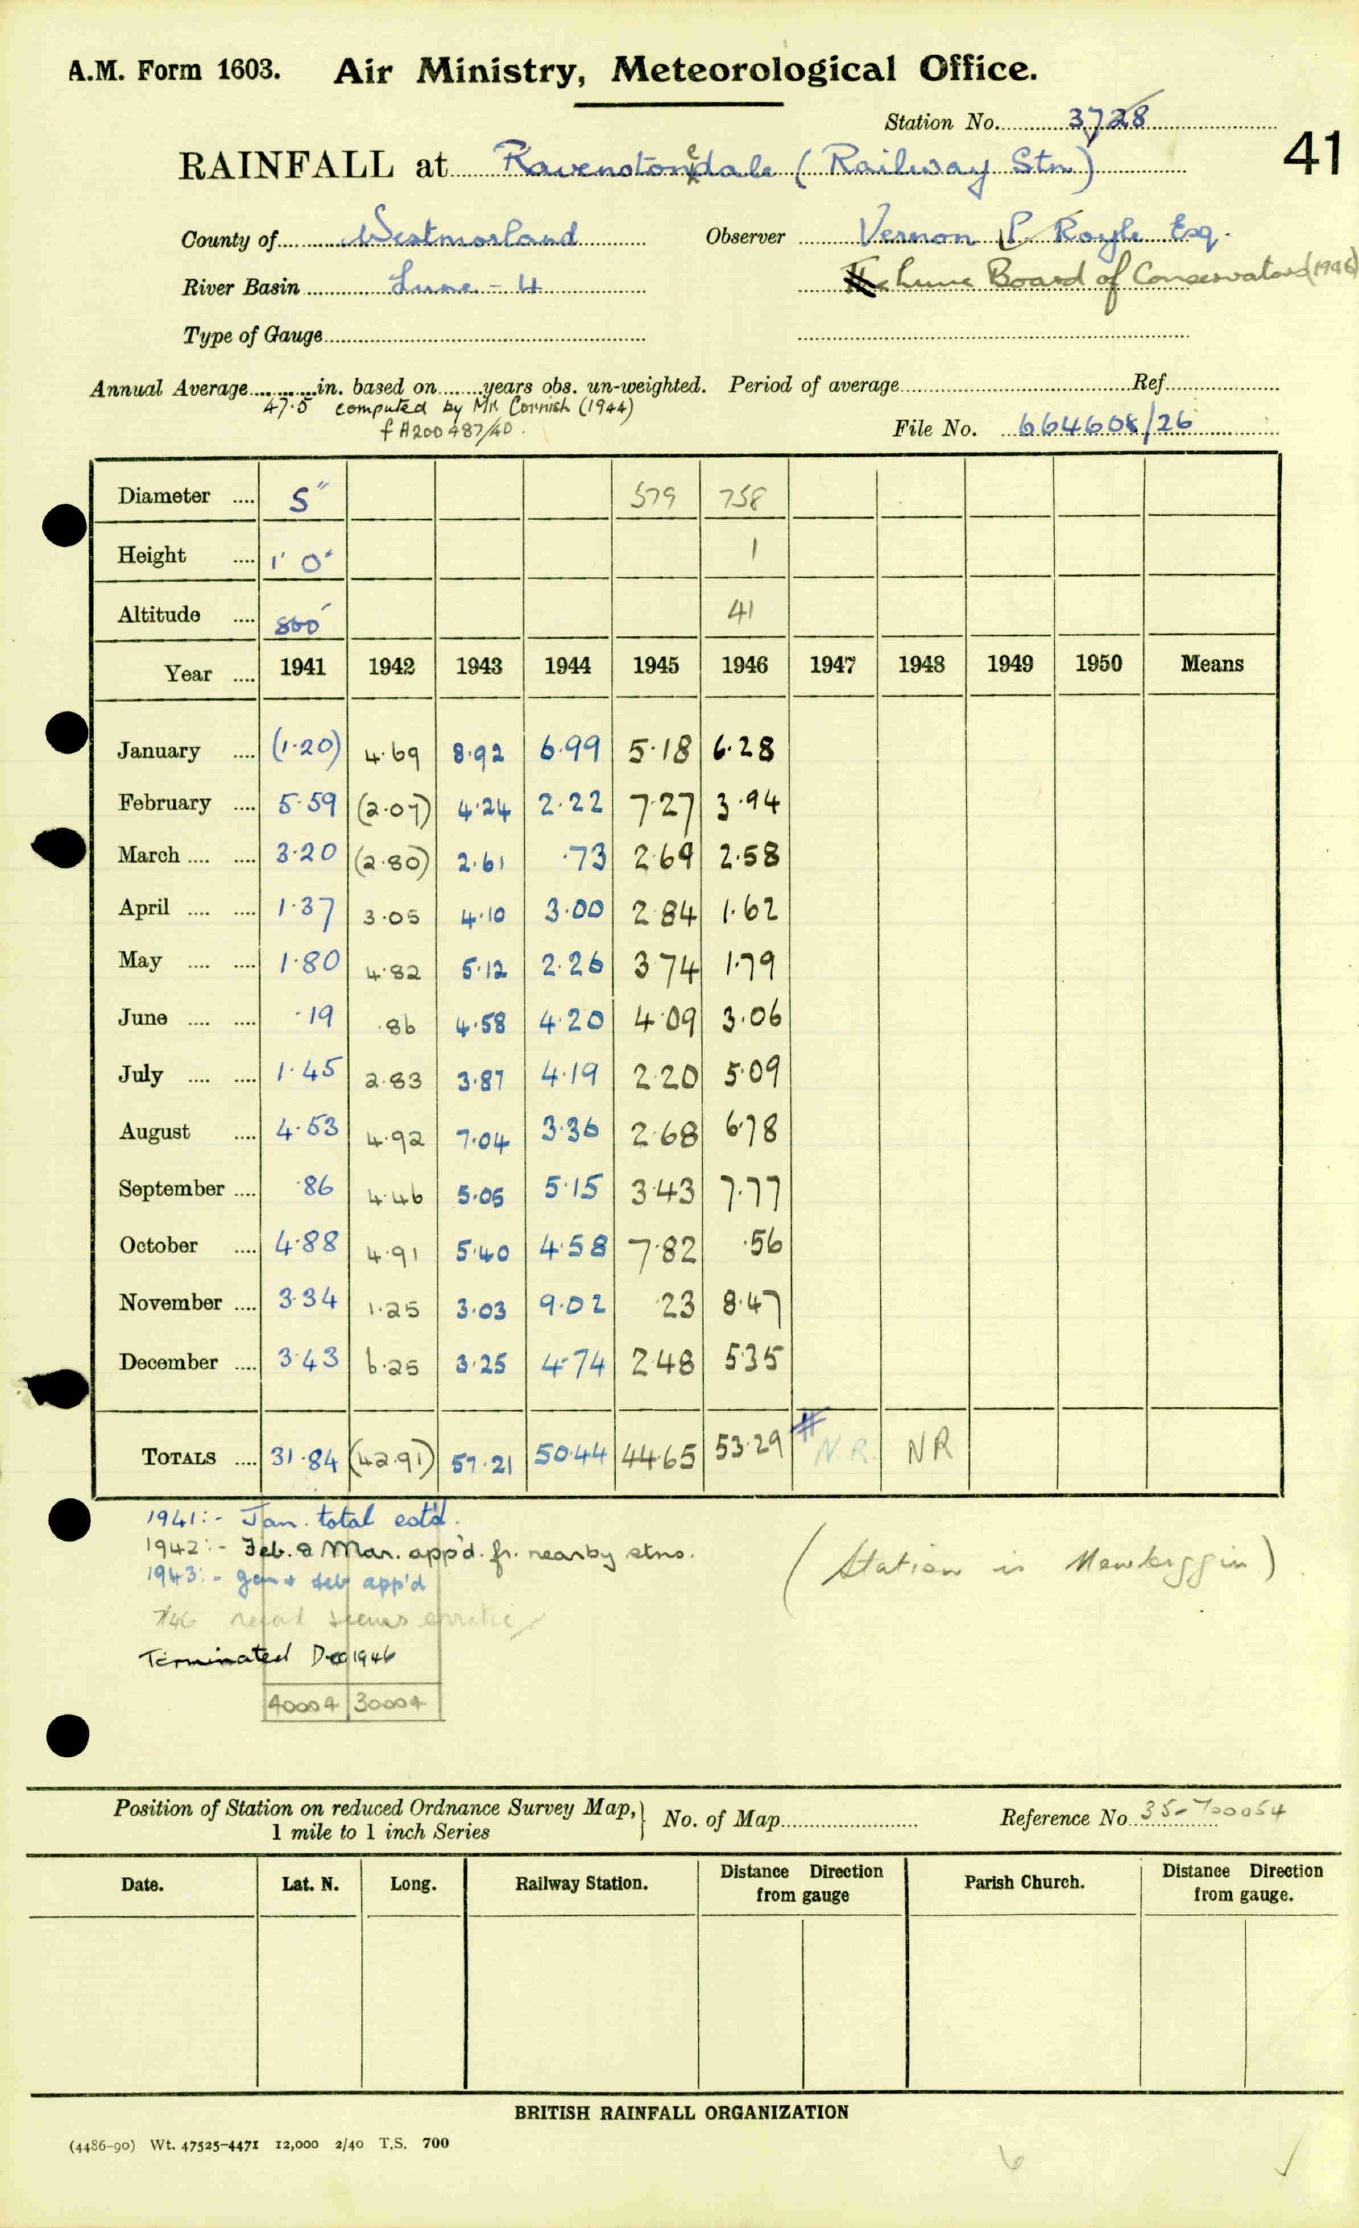 A.M. Form 1603. Air Ministry, Meteorological Office.
Station No. 3728
41
RAINFALL at Ravenstonedale (Railway Stn)
County of Westmorland Observer Vernon P Royle Esq.
River Basin Lune - 4 Lune Board of Conservators (1946)
Type of Gauge
Annual Average in. based on years obs. un-weighted. Period of average Ref.
47.5 computed by Mr Cornish (1944)
f A200487/40.
File No. 664608/26
Diameter 5" 579 758
Height 1' 0" 1
Altitude 800' 41
Year 1941 1942 1943 1944 1945 1946 1947 1948 1949 1950 Means
January (1.20) 4.69 8.92 6.99 5.18 6.28
February 5.59 (2.07) 4.24 2.22 7.27 3.94
March 3.20 (2.80) 2.61 .73 2.69 2.58
April 1.37 3.05 4.10 3.00 2.84 1.62
May 1.80 4.82 5.12 2.26 3.74 1.79
June .19 .86 4.58 4.20 4.09 3.06
July 1.45 2.83 3.87 4.19 2.20 5.09
August 4.53 4.92 7.04 3.36 2.68 6.78
September .86 4.46 5.05 5.15 3.43 7.77
October 4.88 4.91 5.40 4.58 7.82 .56
November 3.34 1.25 3.03 9.02 .23 8.47
December 3.43 6.25 3.25 4.74 2.48 5.35
TOTALS 31.84 (42.91) 57.21 50.44 44.65 53.29 # N.R. NR
1941:- Jan. total estd.
1942:- Feb. & Mar. app'd. fr. nearby stns.
1943:- Jan + Feb app'd
(Station is Newbiggin)
7/46 record seems erratic
Terminated Dec 1946
40004 30004
Position of Station on reduced Ordnance Survey Map,
1 mile to 1 inch Series
No. of Map Reference No. 35-700054
Date. Lat. N. Long. Railway Station. Distance Direction from gauge Parish Church. Distance Direction from gauge.
BRITISH RAINFALL ORGANIZATION
(4486-90) Wt. 47525-4471 12,000 2/40 T.S. 700
6